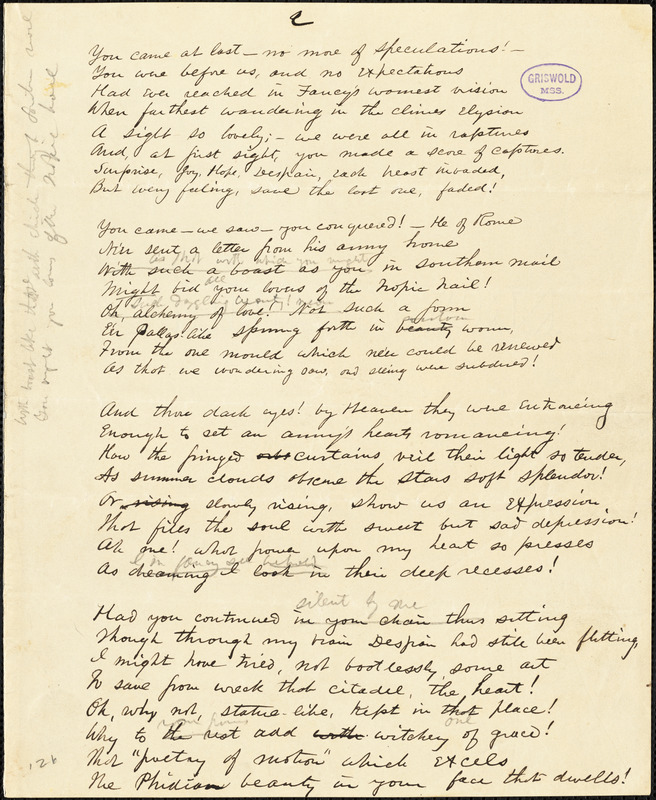 2
You came at last – no more of speculations! –
You were before us, and no expectations
Had ever reached in Fancy's warmest vision
When farthest wandering in the climes Elysian
GRISWOLD
MSS.
A sight so lovely; – we were all in raptures
And, at first sight, you made a score of captures.
Surprise, Joy, Hope, Despair, each breast invaded,
But every feeling, save the last one, faded!
You came – we saw – you conquered! – He of Rome
Ne'er sent a letter from his army home
as that with which you might
With such a boast as you in southern mail
Might bid your lovers of the Nopic hail!
Oh, alchemy of love! Not such a form
E'er Pallas-like sprung forth in beauty warm,
From the one mould which ne'er could be renewed
As that we wondering saw, and seeing were subdured!
And those dark eyes! by Heaven they were Entrancing
Enough to set an army's hearts romancing!
How the fringed curtains veil their light so tender,
As summer clouds obscure the stars soft splendor!
Or rising slowly rising, show us an Expression
That fills the soul with sweet but sad depression!
Ah me! what power upon my heart so presses
As dreaming I look in their deep recesses!
silent by me
Had you continued in your chair thus sitting
Though through my brain Despair had still been flitting,
I might have tried, not bootlessly, some art
To save from wreck that citadel, the heart!
Oh, why not, statue-like, kept in that place!
your form
one
Why to the rest add with witchery of grace!
That "poetry of motion" which Excels
The Phidian beauty in your face that dwells!